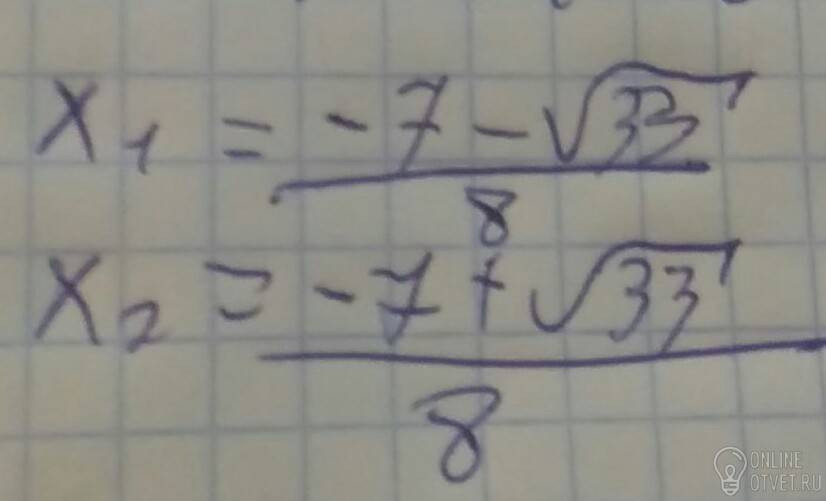 x₁ = (-7 - √33) / 8
x₂ = (-7 + √33) / 8
ONLINE
OTVET.RU